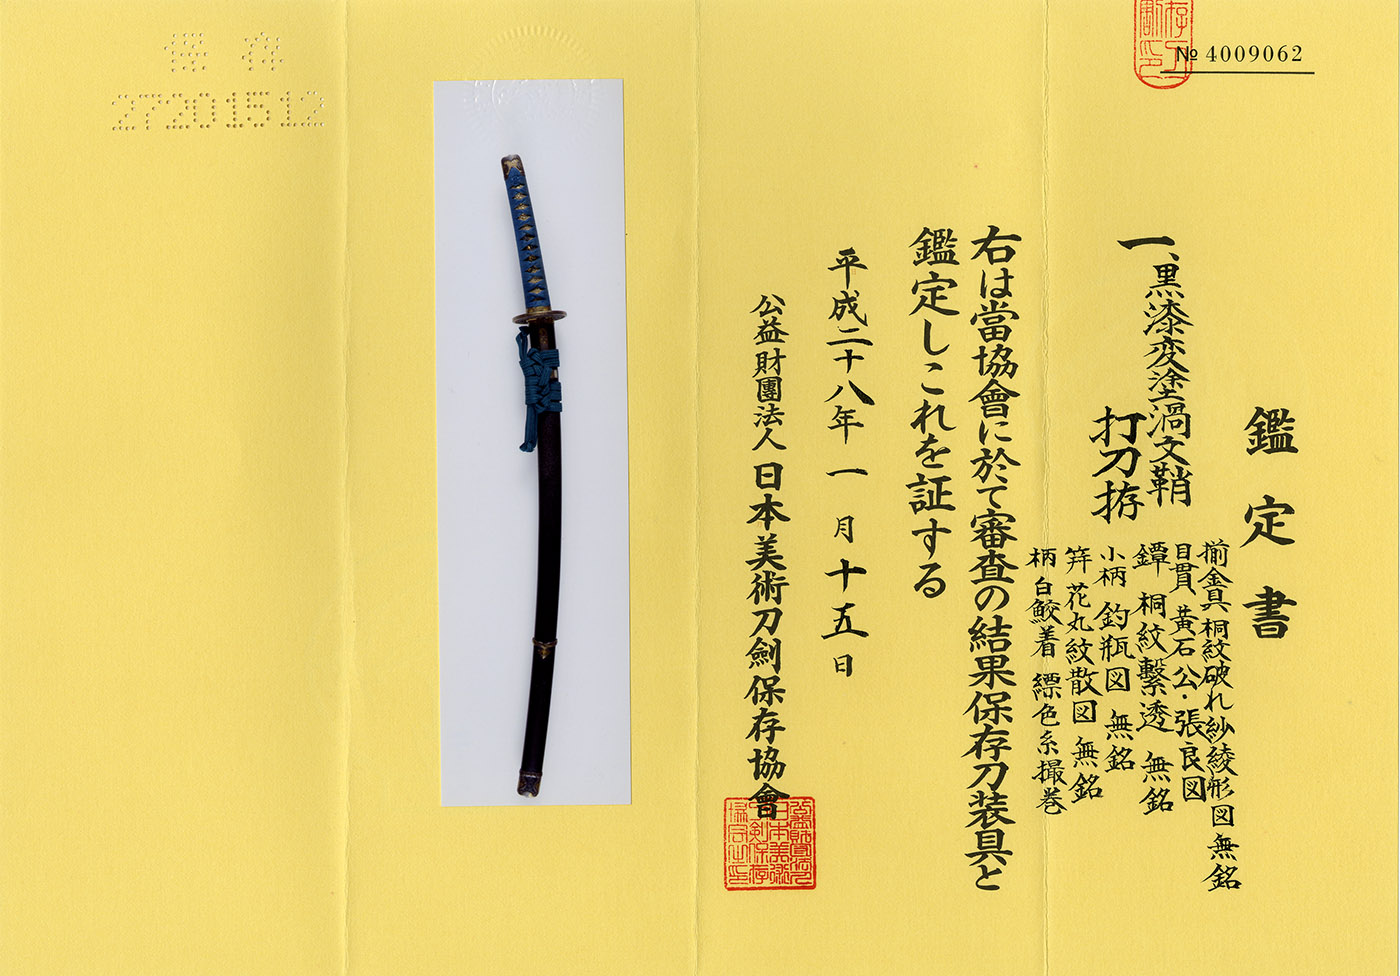 № 4009062
鑑定書
一、黒漆変塗渦文鞘
打刀拵
揃金具 桐紋破れ紗綾形図 無銘
目貫 黄石公・張良図
鐔 桐紋繋透 無銘
小柄 釣瓶図 無銘
笄 花丸紋散図 無銘
柄 白鮫着 縹色糸撮巻
右は當協會に於て審査の結果保存刀装具と
鑑定しこれを証する
平成二十八年一月十五日
公益財團法人 日本美術刀劍保存協會
保存
27201512